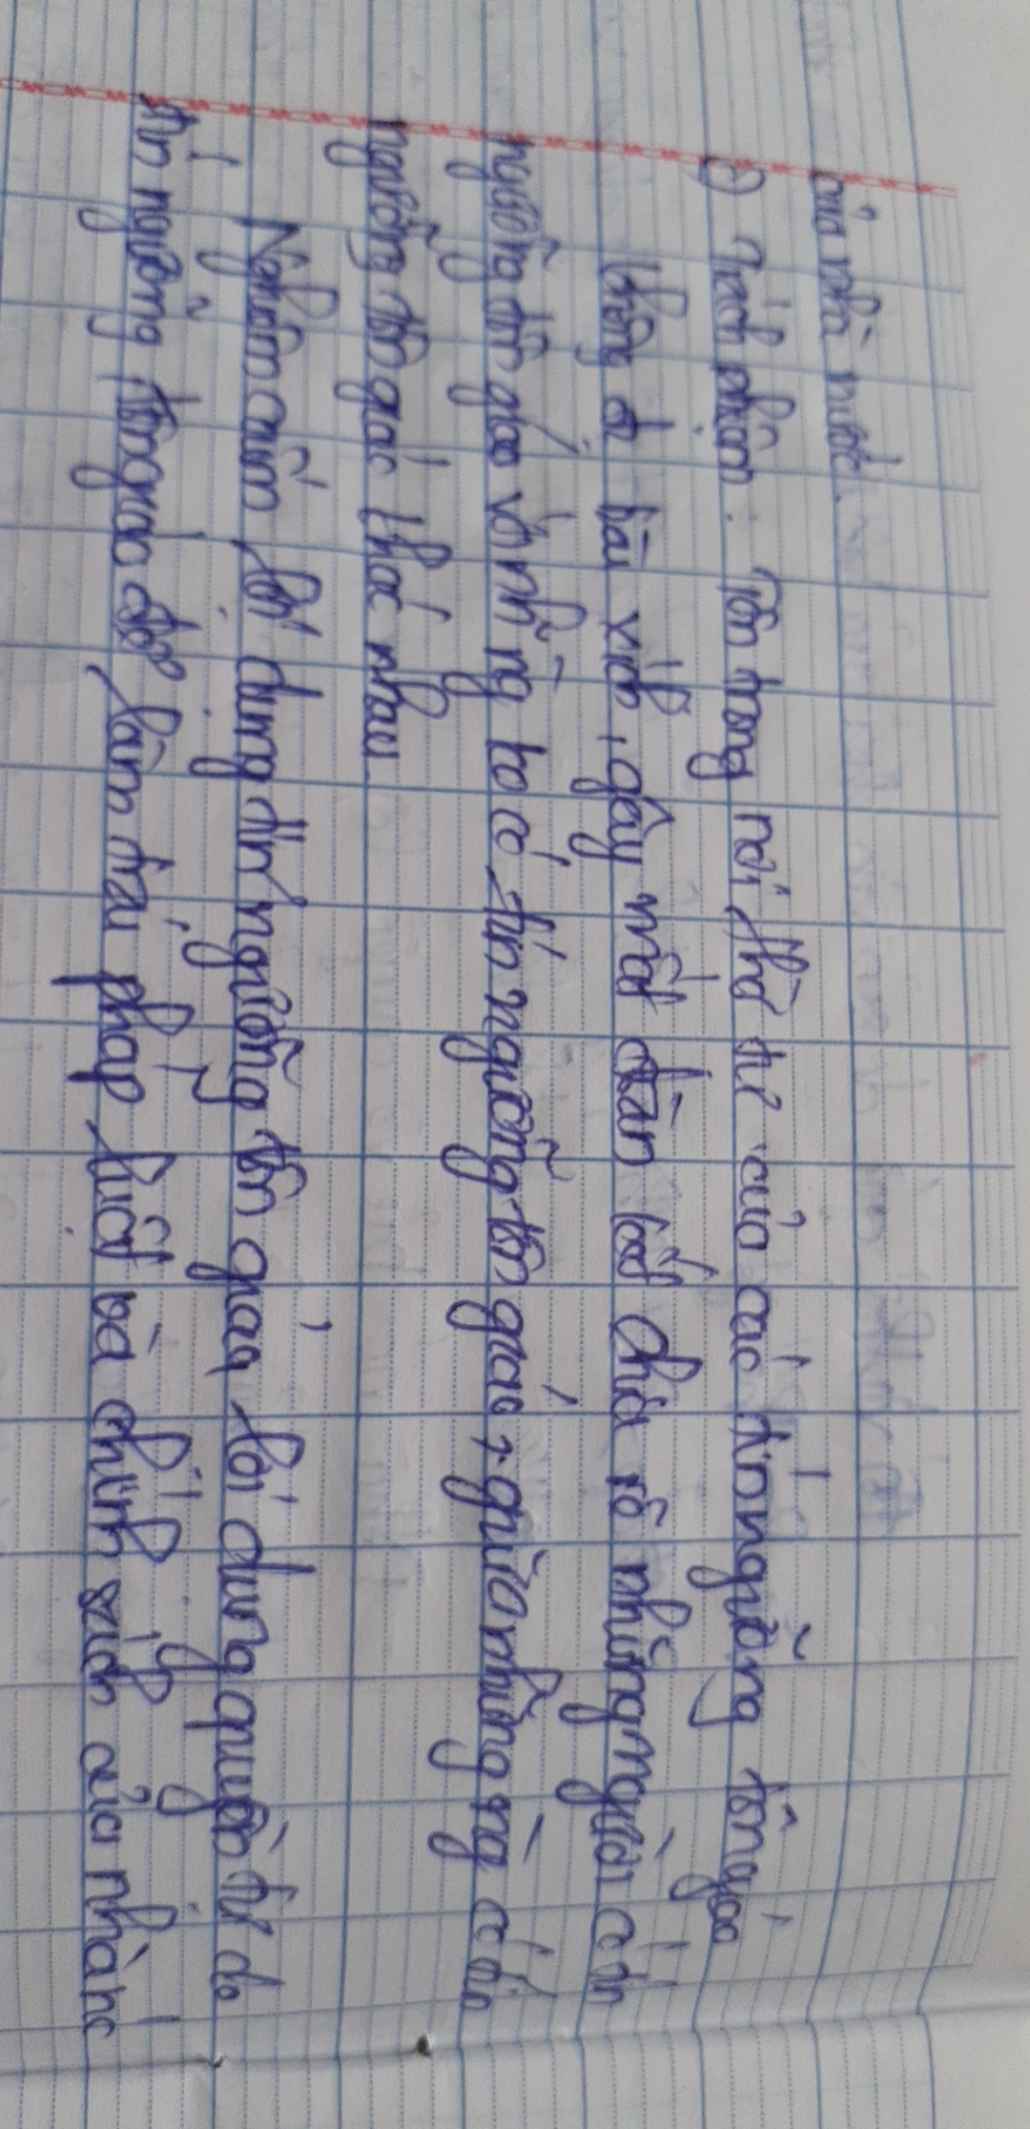 của nhà nước.
c) Trách nhiệm: Tôn trọng nơi thờ tự của các tín ngưỡng tôn giáo
không được bài xích, gây mất đoàn kết chia rẽ những người có tín
ngưỡng tôn giáo với những họ có tín ngưỡng tôn giáo, giữa những ng có tín
ngưỡng tôn giáo khác nhau
Nghiêm cấm lợi dụng tín ngưỡng tôn giáo, lợi dụng quyền tự do
tín ngưỡng tôn giáo để làm trái pháp luật và chính sách của nhà nc